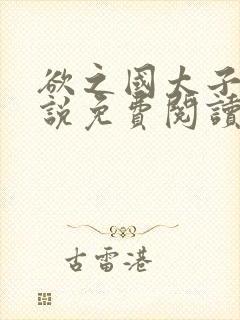 欲之國大子
說免費閱讀
古雷港